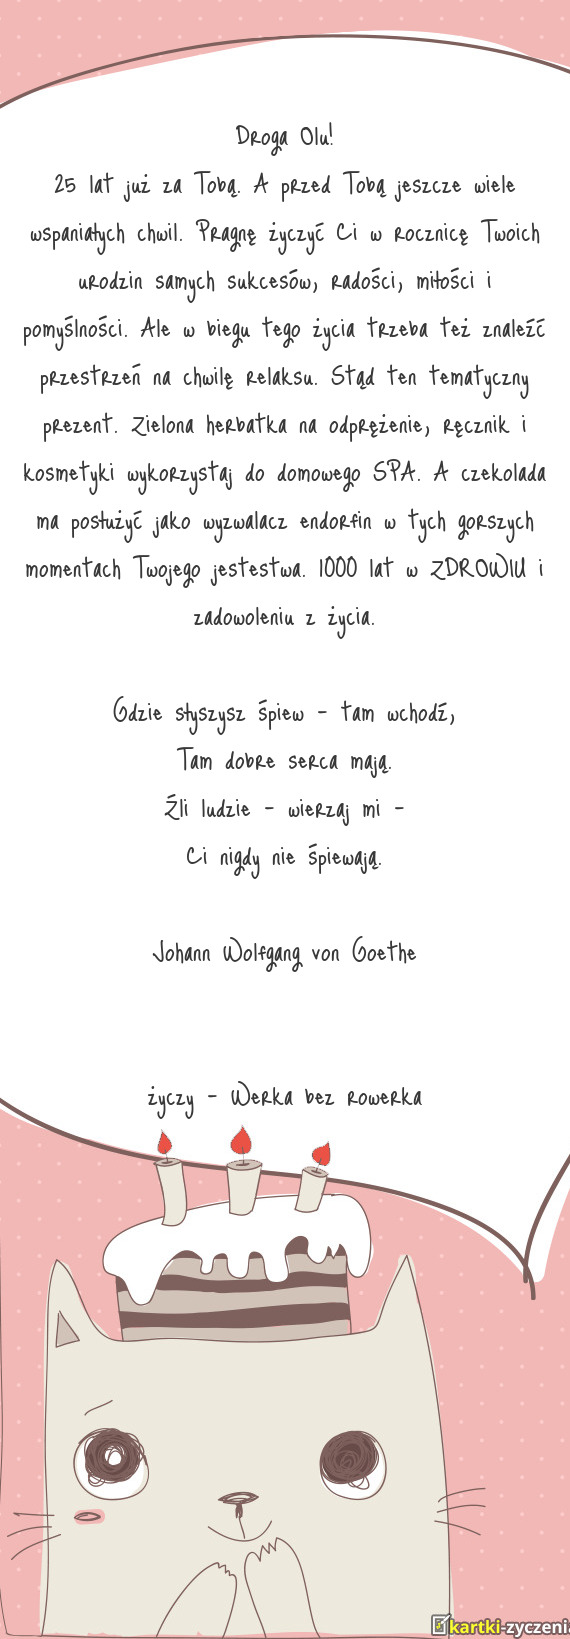 Droga Olu!
25 lat już za Tobą. A przed Tobą jeszcze wiele
wspaniałych chwil. Pragnę życzyć Ci w rocznicę Twoich
urodzin samych sukcesów, radości, miłości i
pomyślności. Ale w biegu tego życia trzeba też znaleźć
przestrzeń na chwilę relaksu. Stąd ten tematyczny
prezent. Zielona herbatka na odprężenie, ręcznik i
kosmetyki wykorzystaj do domowego SPA. A czekolada
ma posłużyć jako wyzwalacz endorfin w tych gorszych
momentach Twojego jestestwa. 1000 lat w ZDROWIU i
zadowoleniu z życia.
Gdzie słyszysz śpiew - tam wchodź,
Tam dobre serca mają.
Źli ludzie - wierzaj mi -
Ci nigdy nie śpiewają.
Johann Wolfgang von Goethe
życzy - Werka bez rowerka
kartki-zyczenia